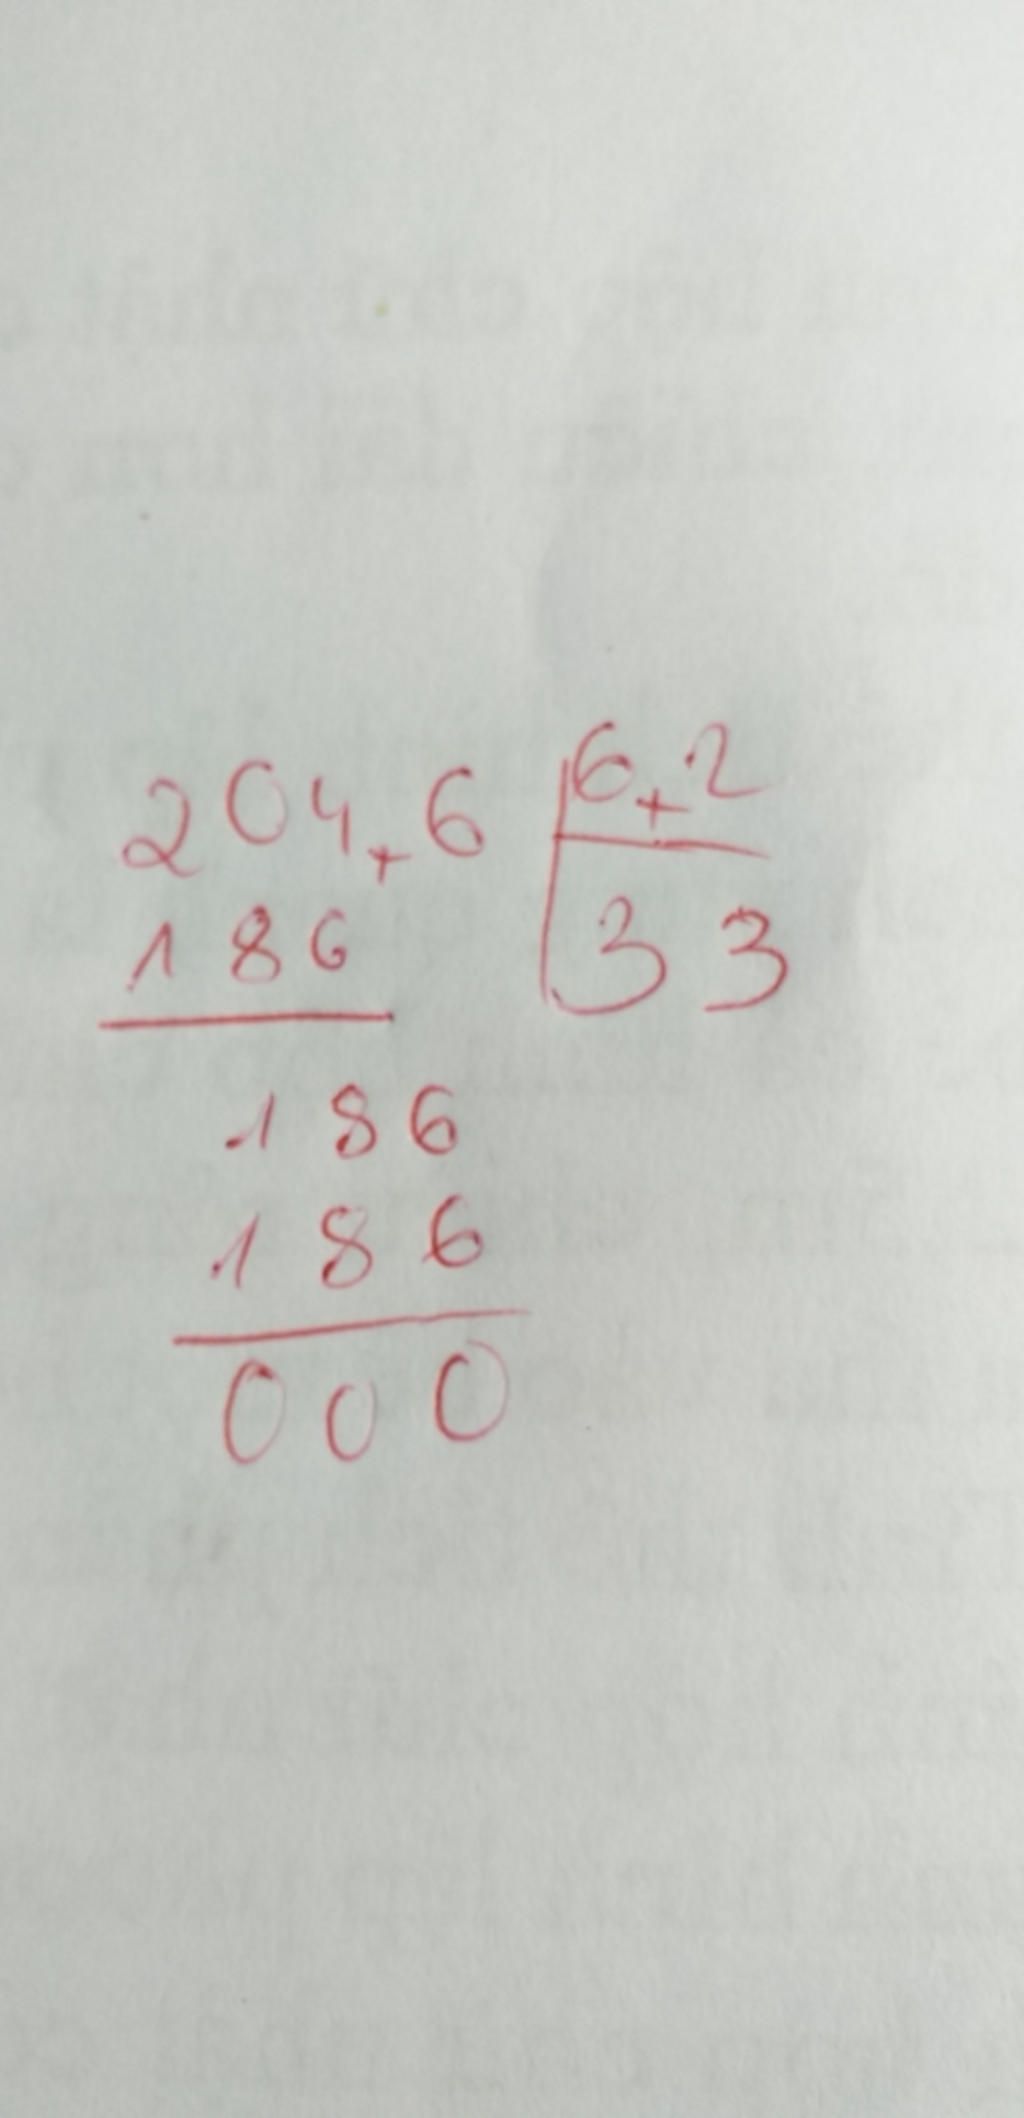 204,6 6,2
186 33
186
186
000